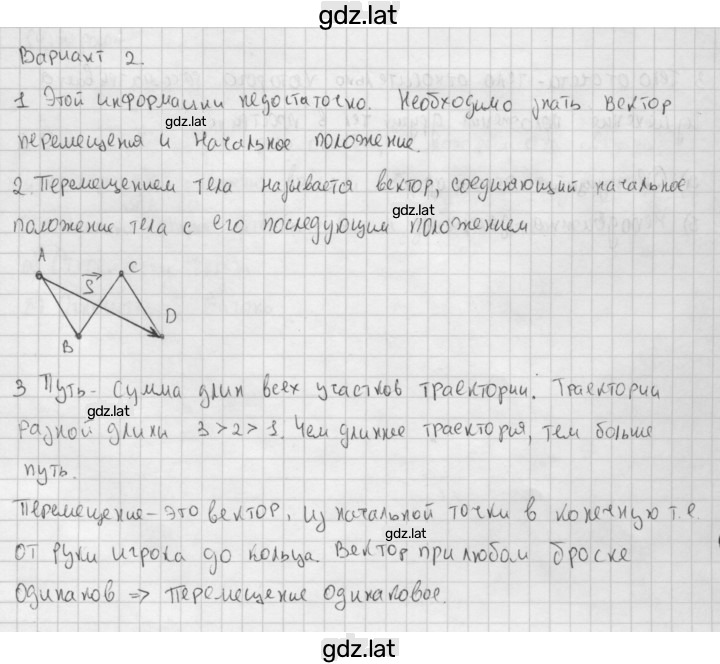 gdz.lat
Вариант 2.
1 Этой информации недостаточно. Необходимо знать вектор
gdz.lat
перемещения и начальное положение.
2. Перемещением тела называется вектор, соединяющий начальное
gdz.lat
положение тела с его последующим положением
A
C
S
D
B
3 Путь - сумма длин всех участков траектории. Траектории
gdz.lat
разной длины 3 > 2 > 1. Чем длиннее траектория, тем больше
путь.
Перемещение - это вектор, из начальной точки в конечную т.е.
gdz.lat
от руки игрока до кольца. Вектор при любом броске
одинаков => перемещение одинаковое.
gdz.lat